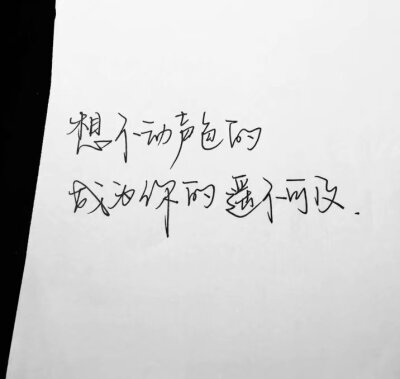 想不动声色的
成为你的遥不可及.